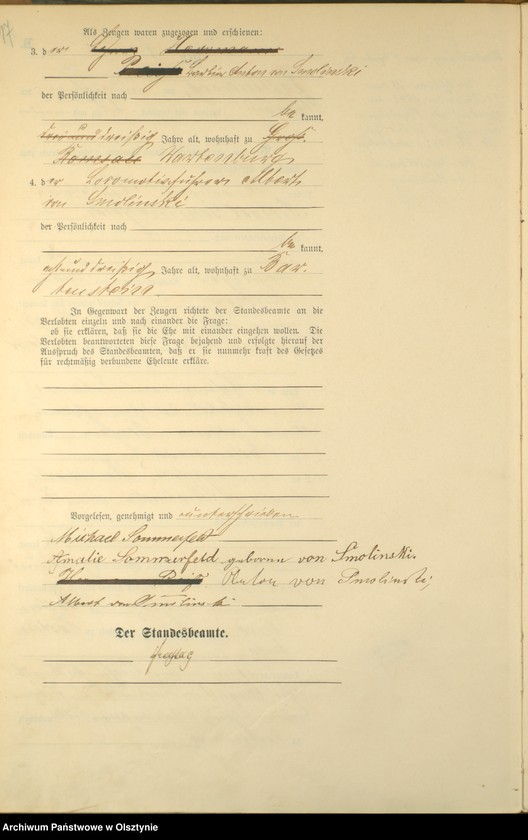 97
Als Zeugen waren zugezogen und erschienen:
3. der
Anton von Smolinski
der Persönlichkeit nach
be kannt,
drei und dreißig Jahre alt, wohnhaft zu Groß
Wartenburg
4. der Lokomotivführer Albert
von Smolinski
der Persönlichkeit nach
be kannt,
acht und dreißig Jahre alt, wohnhaft zu Bar-
tenstein
In Gegenwart der Zeugen richtete der Standesbeamte an die
Verlobten einzeln und nach einander die Frage:
ob sie erklären, daß sie die Ehe mit einander eingehen wollen. Die
Verlobten beantworteten diese Frage bejahend und erfolgte hierauf der
Ausspruch des Standesbeamten, daß er sie nunmehr kraft des Gesetzes
für rechtmäßig verbundene Eheleute erkläre.
Vorgelesen, genehmigt und unterschrieben
Michael Sommerfeld
Amalie Sommerfeld geborene von Smolinski.
Anton von Smolinski,
Albert von Smolinski
Der Standesbeamte.
Archiwum Państwowe w Olsztynie